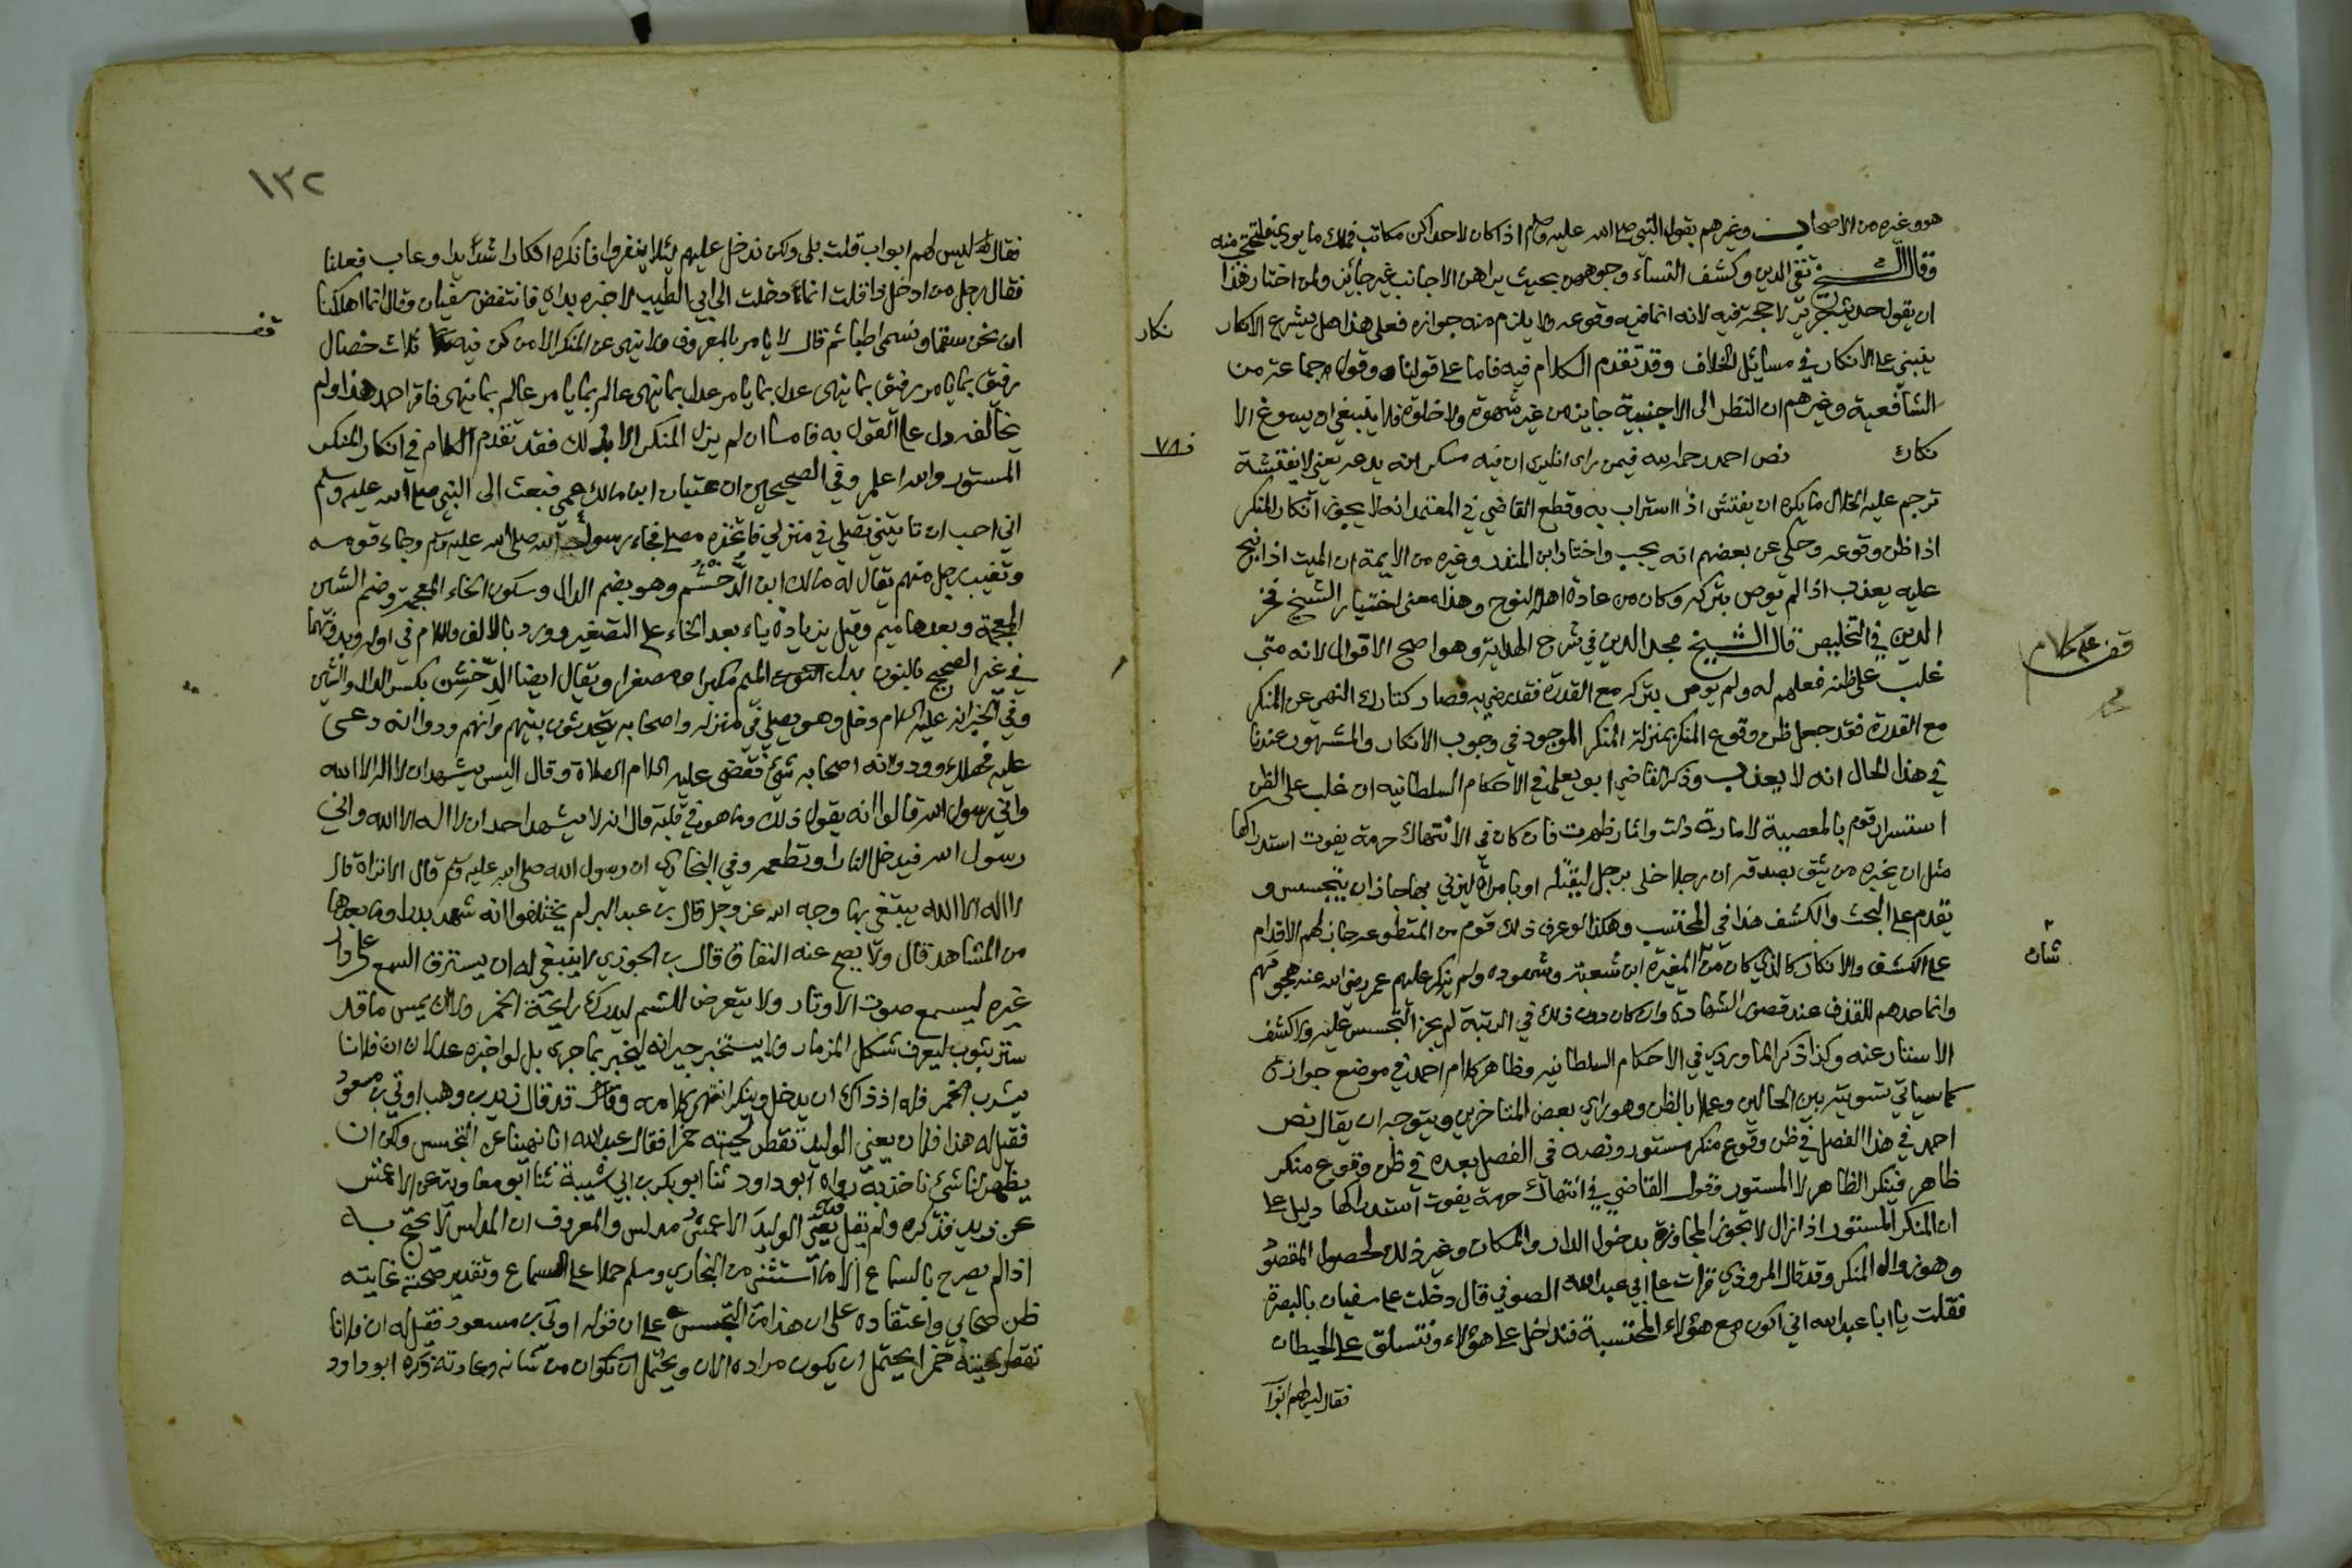 هو وغيره من الاصحاب وغيرهم بقول النبي صلى الله عليه وسلم اذا كان لاحداكن مكاتب فملك ما يودي فلتحتجب منه
وقال الشيخ تقي الدين وكشف النساء وجوههن بحيث يراهن الاجانب غير جائز ولمن اختار هذا
ان يقول حديث جرير لا حجة فيه لانه انما فيه وقوعه ولا يلزم منه جوازه فعلى هذا هل يشرع الانكار
نكار
ينبني على الانكار في مسائل الخلاف وقد تقدم الكلام فيه فاما على قولنا وقول جماعة من
الشافعية وغيرهم ان النظر الى الاجنبية جايز من غير شهوة ولا خلوة فلا ينبغي ان يسوغ الا
نكار نص احمد رحمه الله فيمن راى اناء يرى ان فيه مسكر انه يدعه يعني لا يفتشه
ترجم عليه الخلال ما يكره ان يفتش اذا استراب به وقطع القاضي في المعتمد انه لا يجوز انكار المنكر
اذا ظن وقوعه وحكي عن بعضهم انه يجب واختار ابن المنذر وغيره من الايمة ان الميت اذا نيح
عليه يعذب اذا لم يوص بتركه وكان من عادة اهله النوح وهذا معنى اختيار الشيخ فخر
الدين في التخليص قال الشيخ مجد الدين في شرح الهداية وهو اصح الاقوال لانه متى
قف على كلام
غلب على ظنه فعلهم له ولم يوص بتركه مع القدرة فقد رضي به فصار كتارك النهي عن المنكر
مع القدرة فقد جعل ظن وقوع المنكر بمنزلة المنكر الموجود في وجوب الانكار والمشهور عندنا
في هذا الحال انه لا يعذب وذكر القاضي ابو يعلى في الاحكام السلطانيه ان غلب على الظن
استسرار قوم بالمعصية لامارة دلت واثار ظهرت فان كان في الانتهاك حرمة يفوت استدراكها
مثل ان يخبره من يثق بصدقه ان رجلا خلى برجل ليقتله او بامراة ليزني بها جاز ان يتجسس و
يقدم على البحث والكشف هذا في المحتسب وهكذا لو عرف ذلك قوم من المتطوعه جاز لهم الاقدام
على الكشف والانكار كالذي كان من المغيرة ابن شعبة وشهوده ولم ينكر عليهم عمر رضي الله عنه هجومهم
شان
وانما حدهم للقذف عند قصور الشهادة وان كان دون ذلك في الرتبة لم يجز التجسس عليه ولا كشف
الاستتار عنه وكذا ذكر الماوردي في الاحكام السلطانيه وظاهر كلام احمد في موضع جوازه
كما سياتي تسويته بين الحالين وعملا بالظن وهو راي بعض المتاخرين ويتوجه ان يقال نص
احمد في هذا الفصل في ظن وقوع منكر مستور ونصه في الفصل بعده في ظن وقوع منكر
ظاهر فينكر الظاهر لا المستور وقول القاضي في انتهاك حرمة يفوت استدراكها دليل على
ان المنكر المستور اذا زال لا تجوز المجاوزة بدخول الدار والمكان وغير ذلك لحصول المقصود
وهو زوال المنكر وقد قال المروذي قرات على ابي عبد الله الصوفي قال دخلت على سفيان بالبصرة
فقلت يا ابا عبد الله اني اكون مع هؤلاء المحتسبة فندخل على هؤلاء ونتسلق على الحيطان
فقال ليس لهم ابوا
١٣٢
فقال ليس لهم ابواب قلت بلى ولكن ندخل عليهم لئلا ينفروا فانكره انكارا شديدا وعاب فعلنا
فقال رجل من ادخل ذا قلت انما دخلت الى ابي الطيب لاخبره بدائي فانتفض سفيان وقال انما اهلكنا
ان نحن سقما ونسمى اطبا ثم قال لا يامر بالمعروف ولا ينهى عن المنكر الا من كن فيه ثلاث خصال
قف
رفيق بما يامر رفيق بما ينهى عدل بما يامر عدل بما ينهى عالم بما يامر عالم بما ينهى فاقرا احمد هذا ولم
يخالفه دل على القول به فاما ان لم يزل المنكر الا بذلك فقد تقدم الكلام في انكار المنكر
المستور والله اعلم وفي الصحيحين ان عتبان ابن مالك عمي فبعث الى النبي صلى الله عليه وسلم
اني احب ان تاتيني تصلي في منزلي فاتخذه مصلى فجاء رسول الله صلى الله عليه وسلم وجاء قومه
وتغيب رجل منهم يقال له مالك ابن الدخشم وهو بضم الدال وسكون الخاء المعجمة وضم الشين
المعجمة وبعدها ميم وقيل بزيادة ياء بعد الخاء على التصغير وورد بالالف واللام في اوله وبدونهما
في غير الصحيح بالنون بدل الميم مكبرا ومصغرا ويقال ايضا الدخشن بكسر الدال والشين
وفي الخبر انه عليه السلام دخل وهو يصلي في منزله واصحابه يتحدثون بينهم وانهم ودوا انه دعى
عليه فهلك وودوا انه اصحابه شيء فقضى عليه السلام الصلاة وقال اليس يشهد ان لا اله الا الله
واني رسول الله قالوا انه يقول ذلك وما هو في قلبه قال انه لا يشهد احد ان لا اله الا الله واني
رسول الله فيدخل النار او تطعمه وفي البخاري ان رسول الله صلى الله عليه وسلم قال الا تراه قال
لا اله الا الله يبتغي بها وجه الله عز وجل قال بن عبد البر لم يختلفوا انه شهد بدرا وما بعدها
من المشاهد قال ولا يصح عنه النفاق قال بن الجوزي لا ينبغي له ان يسترق السمع على دار
غيره ليسمع صوت الاوتار ولا يتعرض للشم ليدرك رايحة الخمر ولا ان يمس ما قد
ستر بثوب ليعرف شكل المزمار ولا يستخبر جيرانه ليخبر بما جرى بل لو اخبره عدلان ان فلانا
يشرب الخمر فله اذ ذاك ان يدخل وينكر انتهى كلامه وقد قال زيد بن وهب اوتي بن مسعود
فقيل له هذا فلان يعني الوليد تقطر لحيته خمرا فقال عبد الله انا نهينا عن التجسس ولكن ان
يظهر لنا شيء ناخذ به رواه ابو داود ثنا ابو بكر بن ابي شيبة ثنا ابو معاوية عن الاعمش
عن زيد فذكره ولم يقل يعني الوليد الاعمش مدلس والمعروف ان المدلس لا يحتج به
اذا لم يصرح بالسماع الا ما استثني من البخاري ومسلم حملا على السماع وتقدير صحته غايته
ظن صحابي واعتقاده على ان هذا من التجسس على ان قوله اوتي بن مسعود فقيل له ان فلانا
تقطر لحيته خمرا يحتمل ان يكون مراده الان ويحتمل ان يكون من شانه وعادته ذكره ابو داود